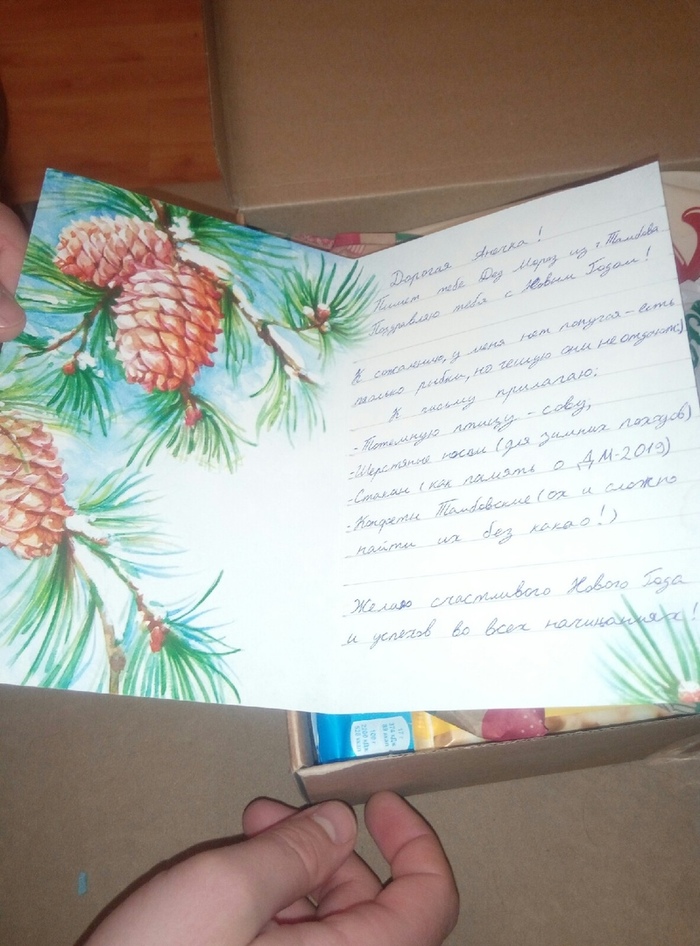 Дорогая Анечка!
Пишет тебе Дед Мороз из г. Тамбова.
Поздравляю тебя с Новым Годом!
К сожалению, у меня нет попугая - есть
только рыбки, но чешую они не отдают)
К письму прилагаю:
- Тотемную птицу - сову;
- Шерстяные носки (для зимних походов)
- Стакан (как память о ДМ-2019)
- Конфеты Тамбовские (ох и сложно
найти их без какао!)
Желаю счастливого Нового Года
и успехов во всех начинаниях!